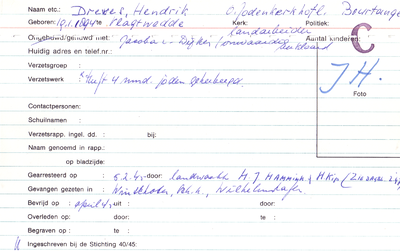 Naam etc.: Drewes, Hendrik O. Jodenkerkhofl. Bourtange
Geboren: 19.1.1894 te Vlagtwedde Kerk: Politiek:
Ongehuwd/gehuwd met: Jacoba landarbeider Aantal kinderen:
Huidig adres en telef.nr.:
C
Verzetsgroep :
Verzetswerk : Heeft 4 mnd. joden geherbergd.
J H.
Foto
Contactpersonen:
Schuilnaam :
Verzetsrapp. ingel. dd. : bij:
Naam genoemd in rapp.:
op bladzijde:
Gearresteerd op : 5.2.4 door: landwacht H. J. Hammingh & H Kip
Gevangen gezeten in : Winschoten, Sch.h., Wilhelmshafen
Bevrijd op : april 45 uit : door:
Overleden op: door: te :
Begraven op : te :
Ingeschreven bij de Stichting 40/45: